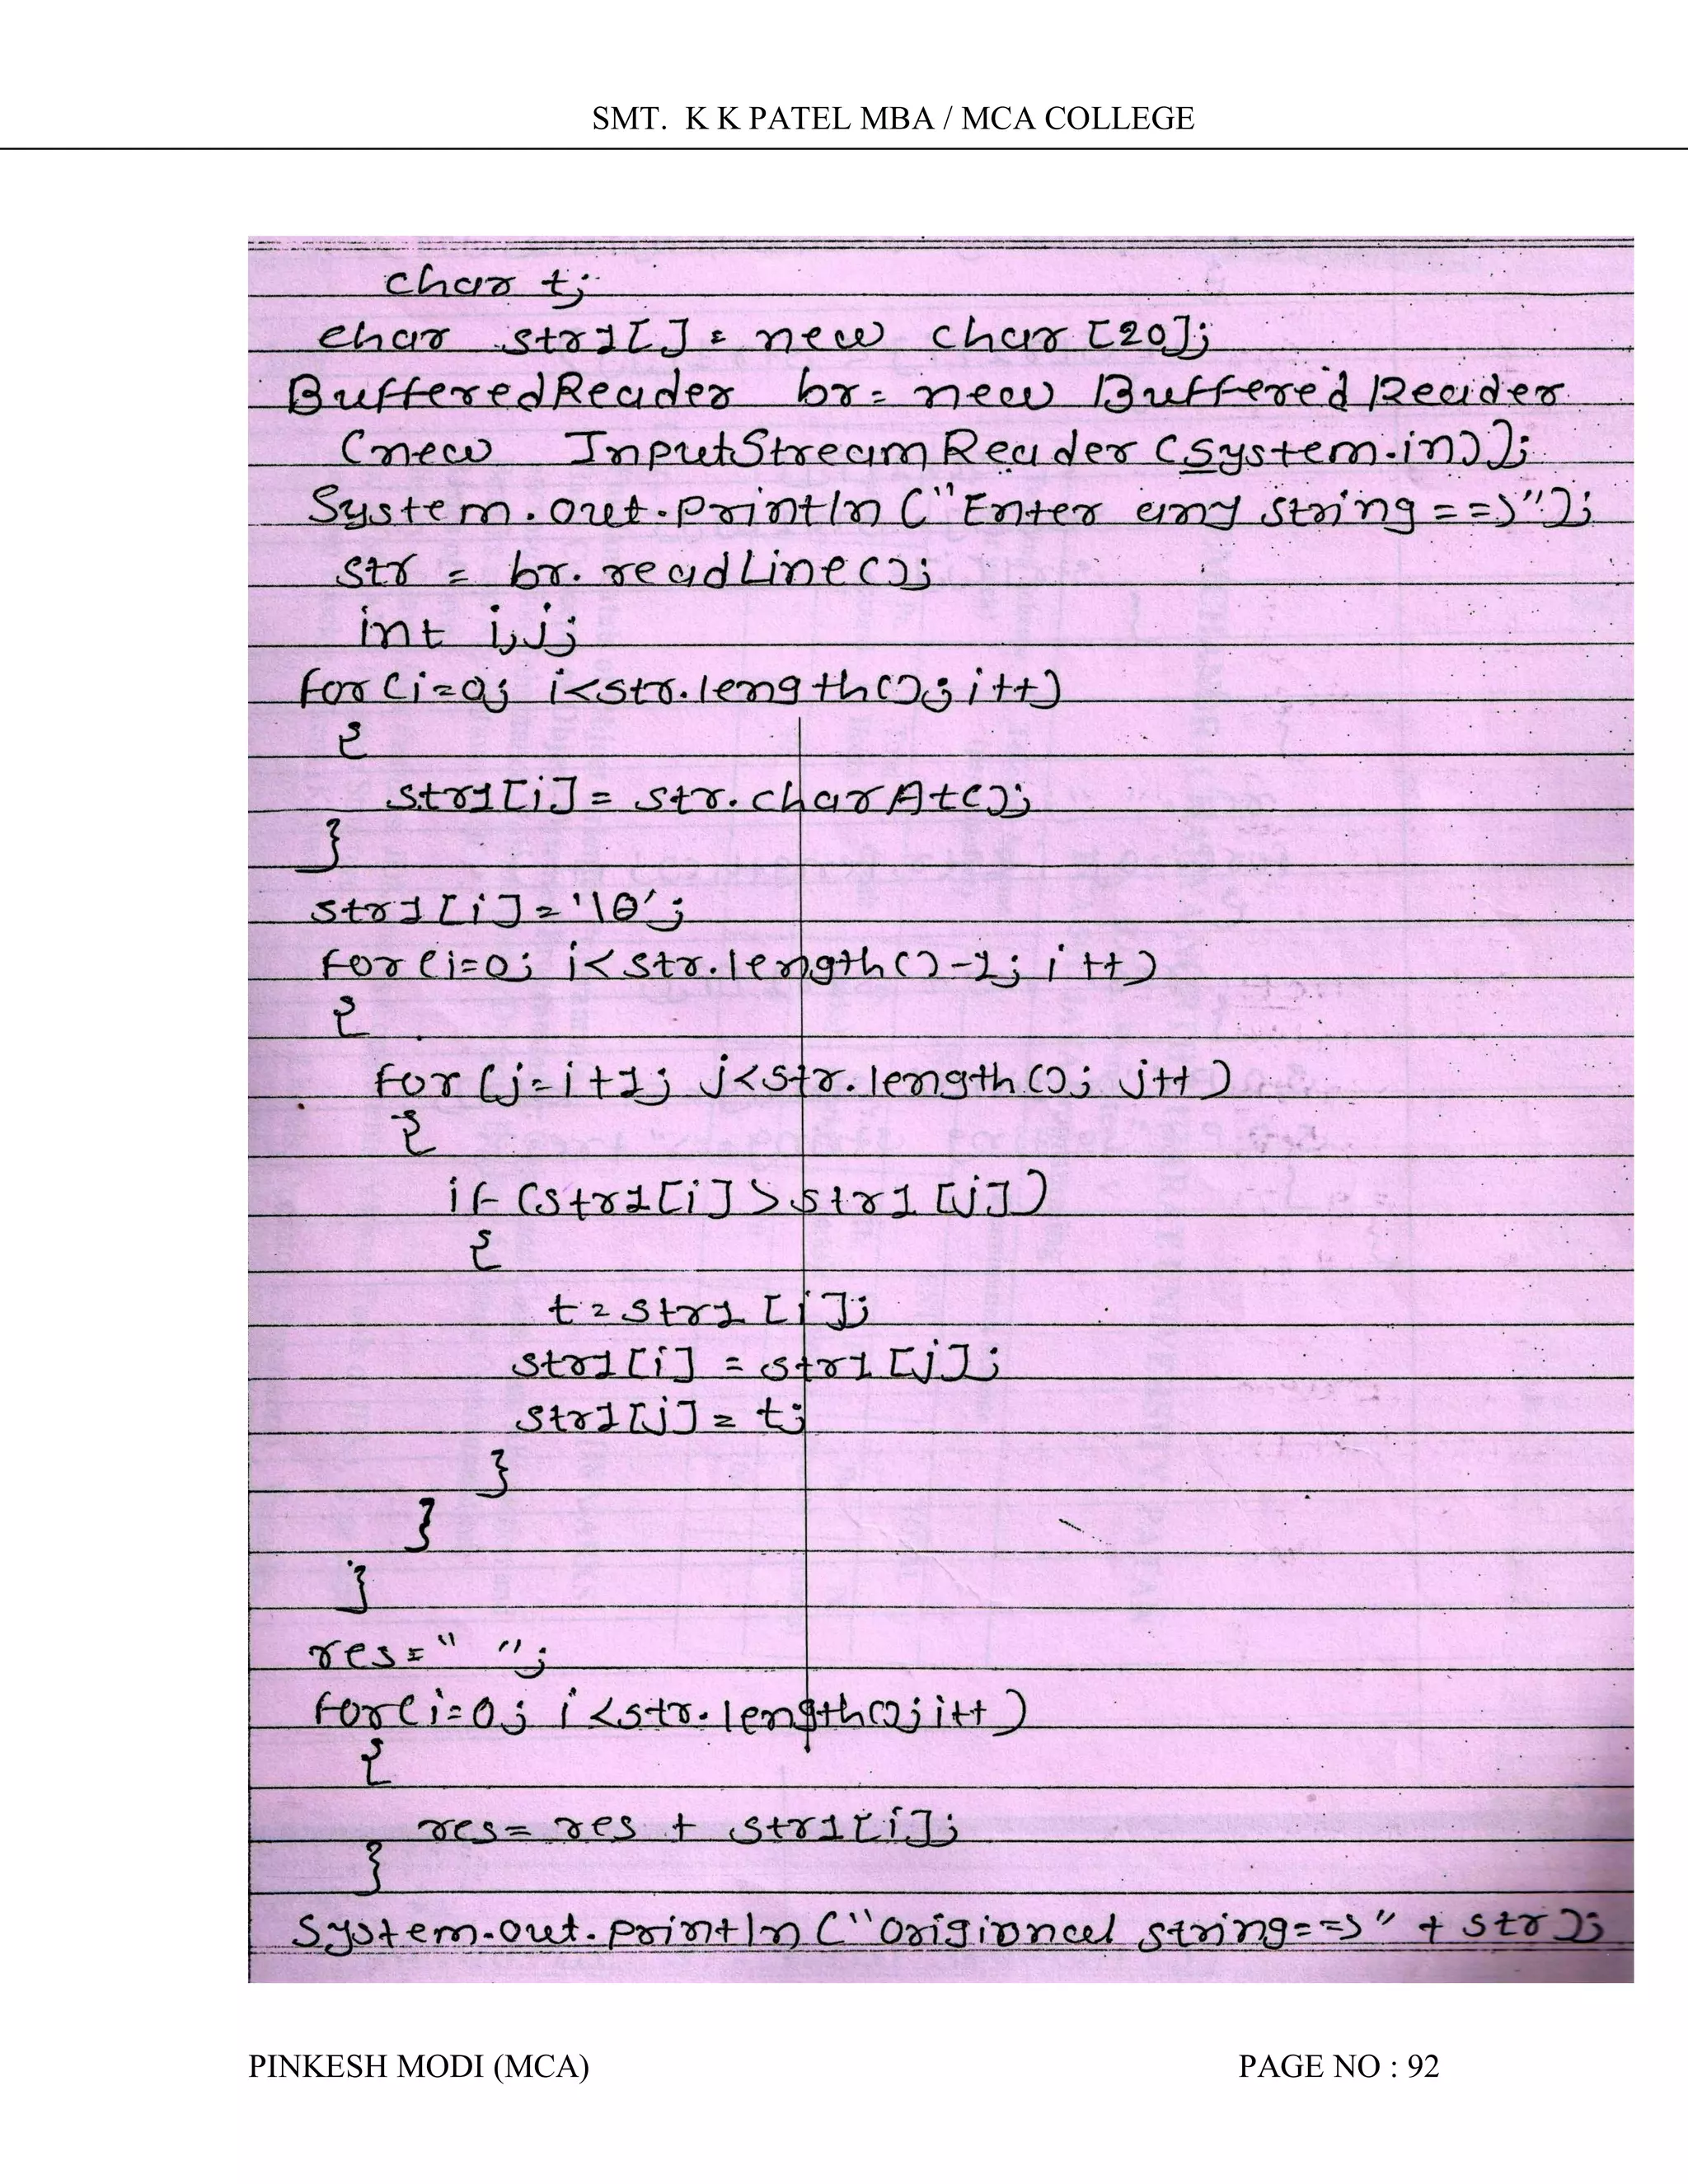 SMT. K K PATEL MBA / MCA COLLEGE
char t;
char str1[] = new char [20];
BufferedReader br = new BufferedReader
(new InputStreamReader (System.in));
System.out.println ("Enter any string ==>");
str = br.readLine();
int i,j;
for (i=0; i<str.length(); i++)
{
str1[i] = str.charAt();
}
str1[i]='\0';
for (i=0; i<str.length()-1; i++)
{
for (j=i+1; j<str.length(); j++)
{
if (str1[i] > str1[j])
{
t=str1[i];
str1[i] = str1[j];
str1[j] = t;
}
}
}
res=" ";
for(i=0; i<str.length(); i++)
{
res= res + str1[i];
}
System.out.println ("Origioncel string==>" + str);
PINKESH MODI (MCA) PAGE NO : 92